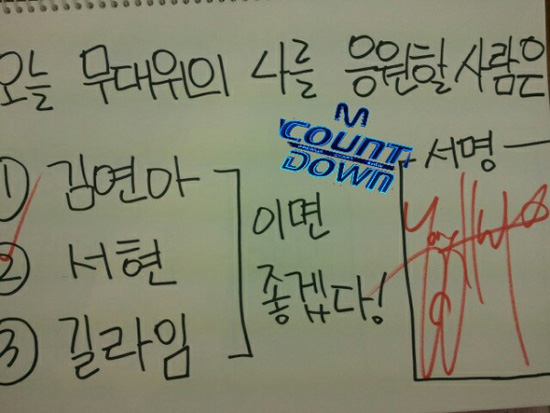 오늘 무대위의 나를 응원할 사람은
M
COUNT
DOWN
서명
① 김연아
② 서현
③ 길라임
이면
좋겠다!